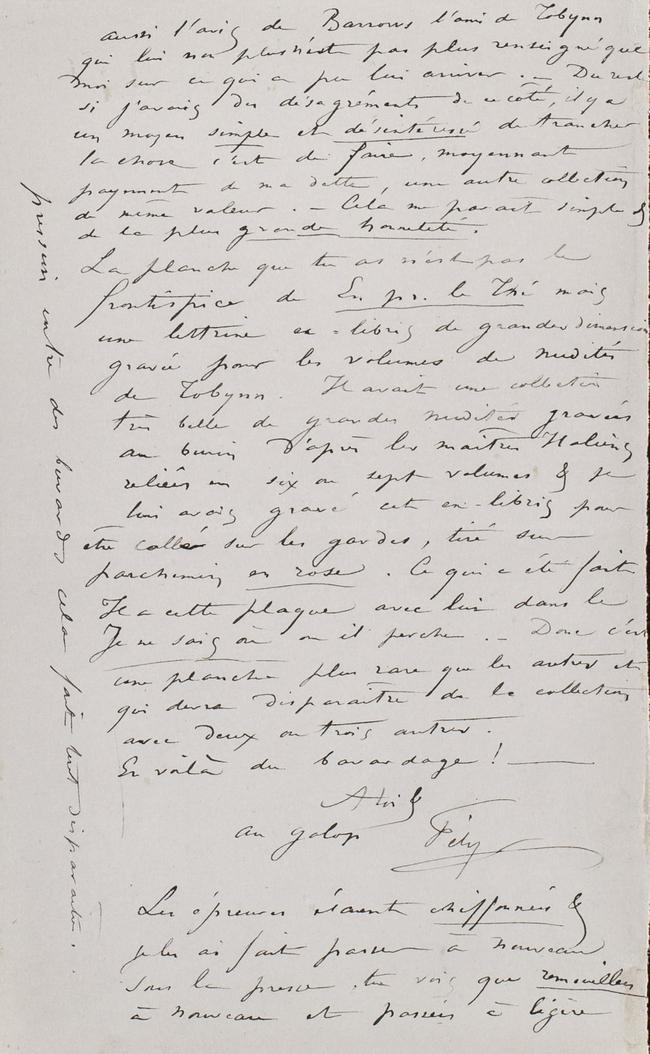 aussi l'avis de Barrows l'ami de Tobynn
qui lui non plus n'est pas plus renseigné que
moi sur ce qui a pu lui arriver. — Du reste
si j'avais des désagréments de ce côté, il y a
un moyen simple et désintéressé de trancher
la chose c'est de faire, moyennant
payement de ma dette, une autre collection
de même valeur. — Cela me parait simple &
de la plus grande honnêteté.
La planche que tu as n'est pas le
frontispice de En pr. le Thé mais
une lettrine ex-libris de grande dimension
gravée pour les volumes de nudités
de Tobynn. Il avait une collection
très belle de grandes nudités gravées
au burin d'après les maîtres Italiens
reliées en six ou sept volumes & je
lui avais gravé cet ex-libris pour
être collé sur les gardes, tiré sur
parchemin en rose. Ce qui a été fait
Il a cette plaque avec lui dans le
Je ne sais où où il perche. — Donc c'est
une planche plus rare que les autres et
qui devra disparaître de la collection
avec deux ou trois autres.
En voilà du bavardage !
A toi &
au galop Fély
Les épreuves étaient chiffonnées &
je les ai fait passer à nouveau
sous la presse. tu vois que remouillées
à nouveau et passées à légère
pression entre des buvards cela fait tout disparaître.